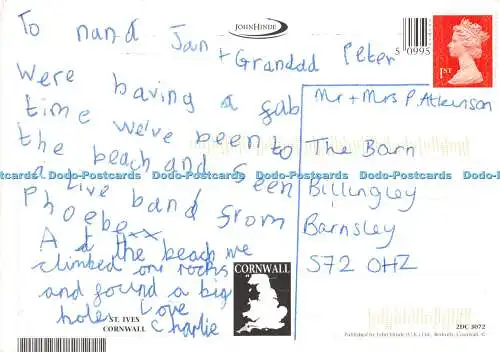 To nand Jan
+ Grandad Peter
Were having a fab
time we've been to
the beach and Seen
a Live band from
Phoebe xx
At the beach we
climbed one rocks
and found a big
hole Love
Charlie
JOHN HINDE
50995
1ST
Mr + Mrs P. Atkinson
The Barn
Billingley
Barnsley
S72 0HZ
Dodo-Postcards Dodo-Postcards Dodo-Postcards Dodo-Postcards Dodo-Postcards
CORNWALL
ST. IVES
CORNWALL
2DC 8072
Published by John Hinde (U.K.) Ltd., Redruth, Cornwall. ©